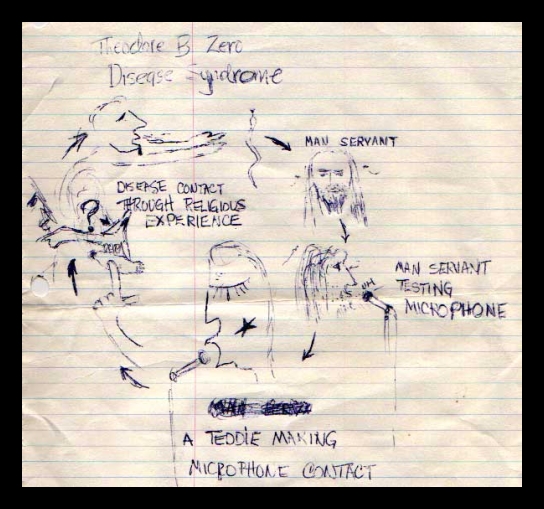 Theodore B. Zero
Disease Syndrome
MAN SERVANT
DISEASE CONTACT
THROUGH RELIGIOUS
EXPERIENCE
?
MAN SERVANT
TESTING
MICROPHONE
A TEDDIE MAKING
MICROPHONE CONTACT